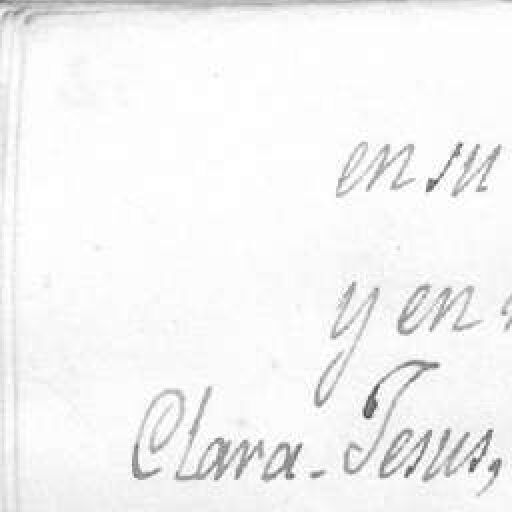 en su
y en
Clara. Jesus,